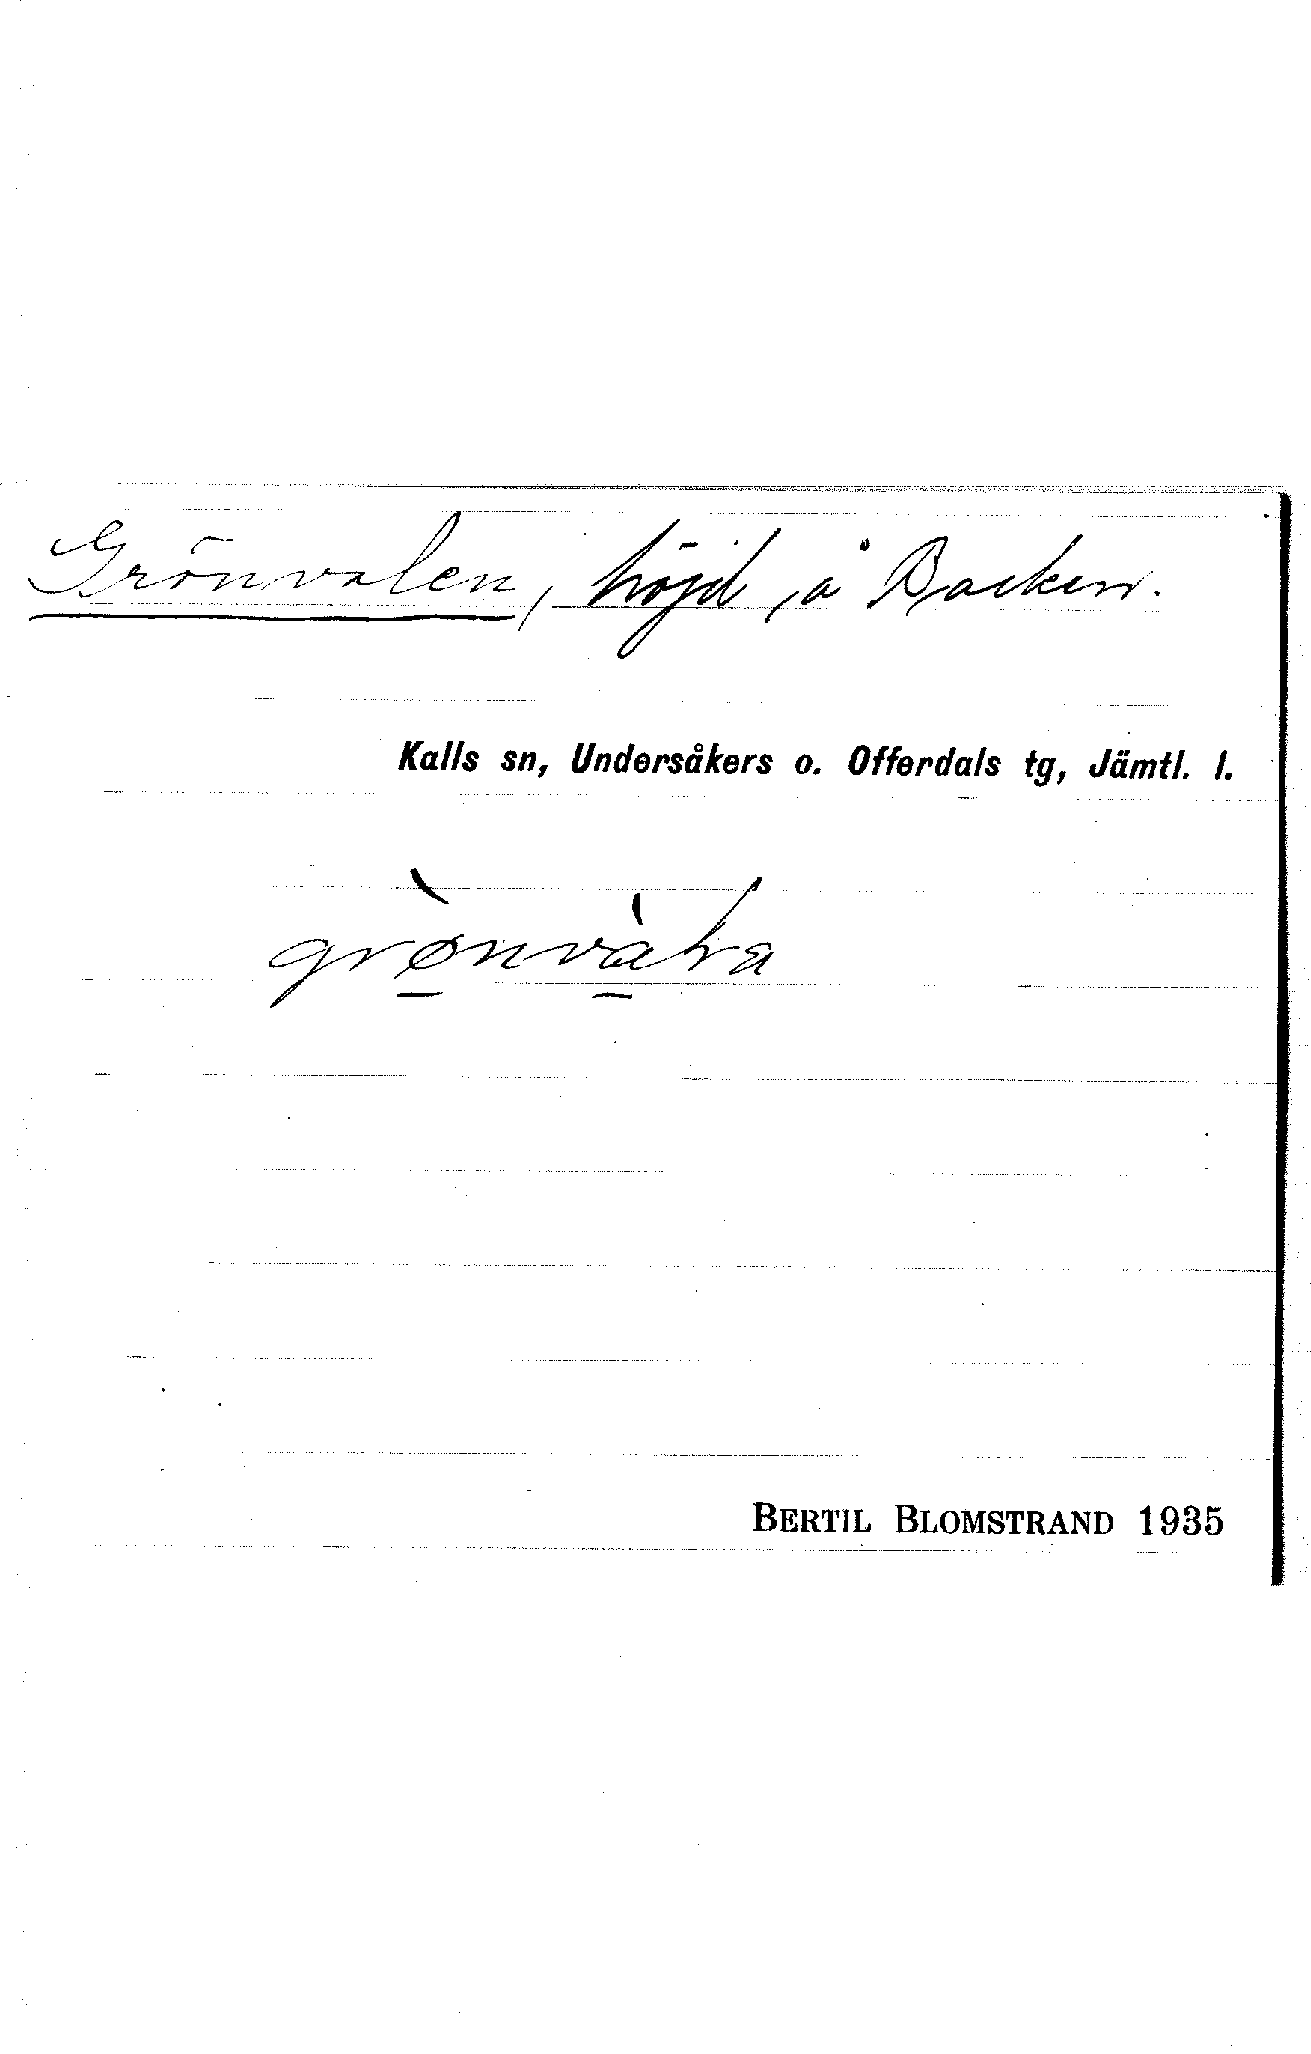 Grönvalen, höjd, å Backen.
Kalls sn, Undersåkers o. Offerdals tg, Jämtl. l.
BERTIL BLOMSTRAND 1935